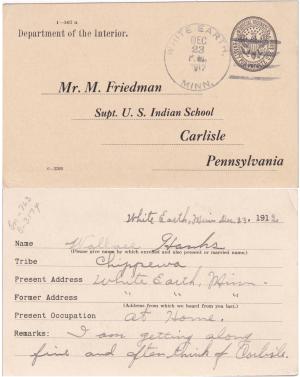 1-567 a
Department of the Interior.
WHITE EARTH,
DEC
23
1912
MINN.
Mr. M. Friedman
Supt. U. S. Indian School
Carlisle
Pennsylvania
White Earth, Minn Dec. 23, 1912
Name Wallace Hanks
(Please give name by which enrolled and also present or married name.)
Tribe Chippewa
Present Address White Earth, Minn.
Former Address " " "
(Address from which we heard from you last.)
Present Occupation At Home.
Remarks: I am getting along
fine and often think of Carlisle.